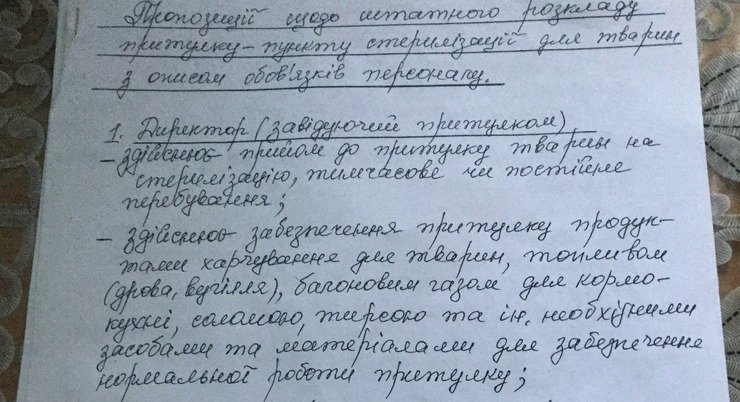 Пропозиції щодо штатного розкладу
притулку-пункту стерилізації для тварин
з описом обов'язків персоналу.
1. Директор (завідуючий притулком)
– здійснює прийом до притулку тварин на
стерилізацію, тимчасове чи постійне
перебування;
– здійснює забезпечення притулку продук-
тами харчування для тварин, топливом
(дрова, вугілля), балоновим газом для кормо-
кухні, соломою, тирсою та ін. необхідними
засобами та матеріалами для забезпечення
нормальної роботи притулку;